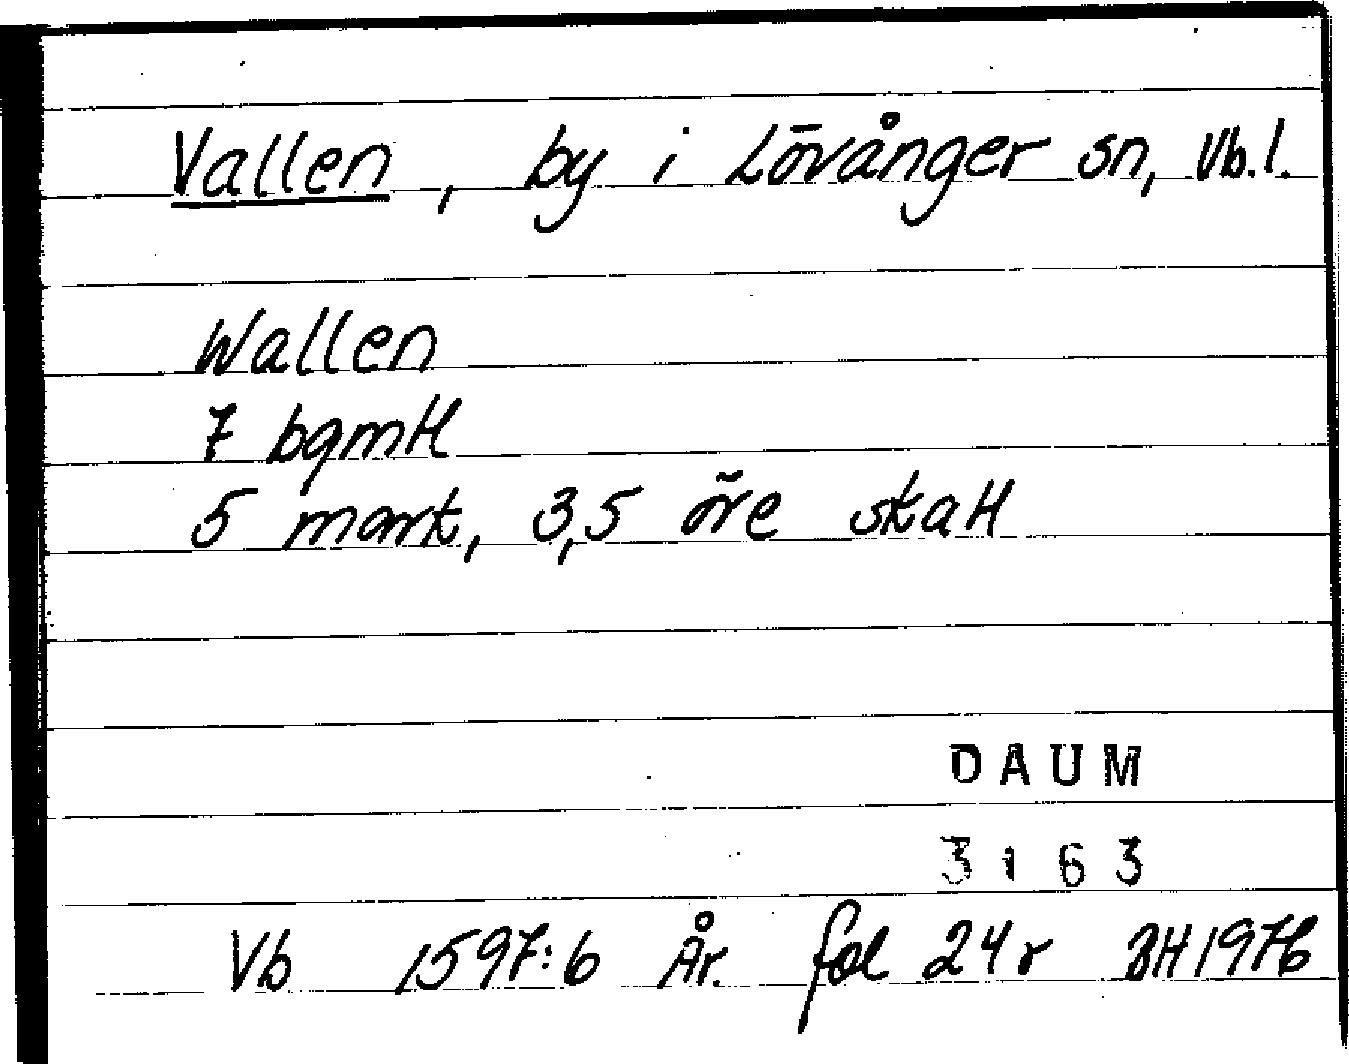 Vallen, by i Lövånger sn, Vb.l.
Wallen
7 bgmtl
5 mark, 3,5 öre skatt
DAUM
3163
Vb 1597:6 År. fol 24r BH1976